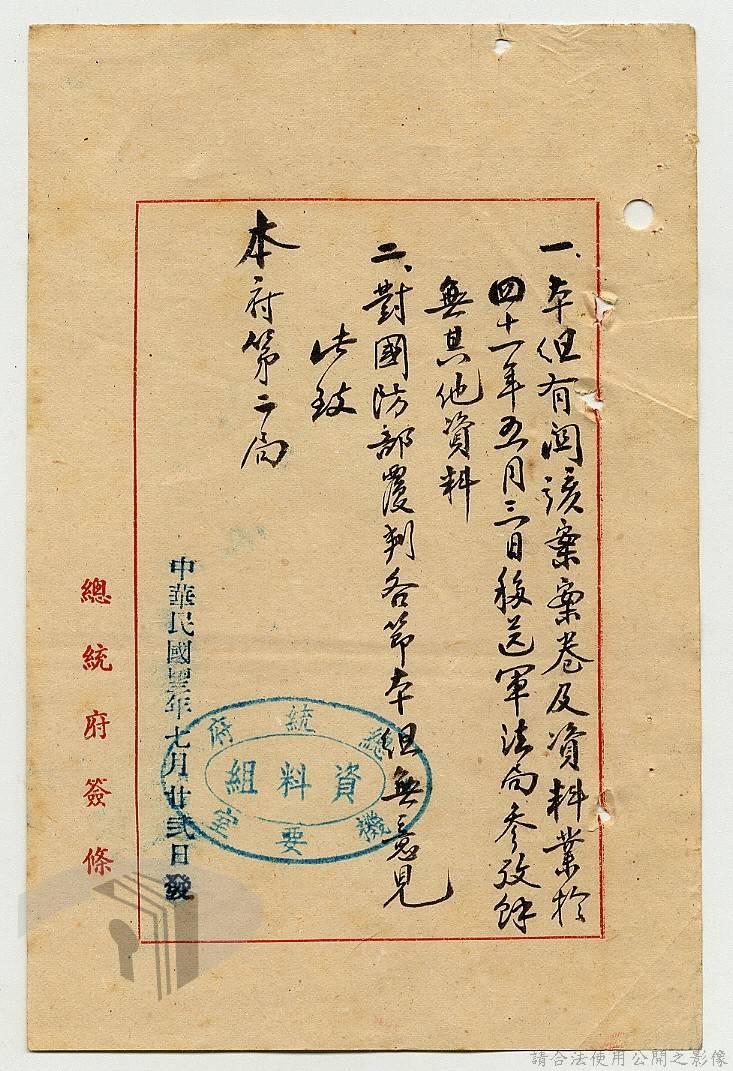 一、本組有關該案案卷及資料業於
四十一年五月三日移送軍法局參攷餘
無其他資料
二、對國防部覆判各節本組無意見
此致
本府第二局
中華民國年七月廿弍日發
總統府機要室
資料組
總統府簽條
請合法使用公開之影像